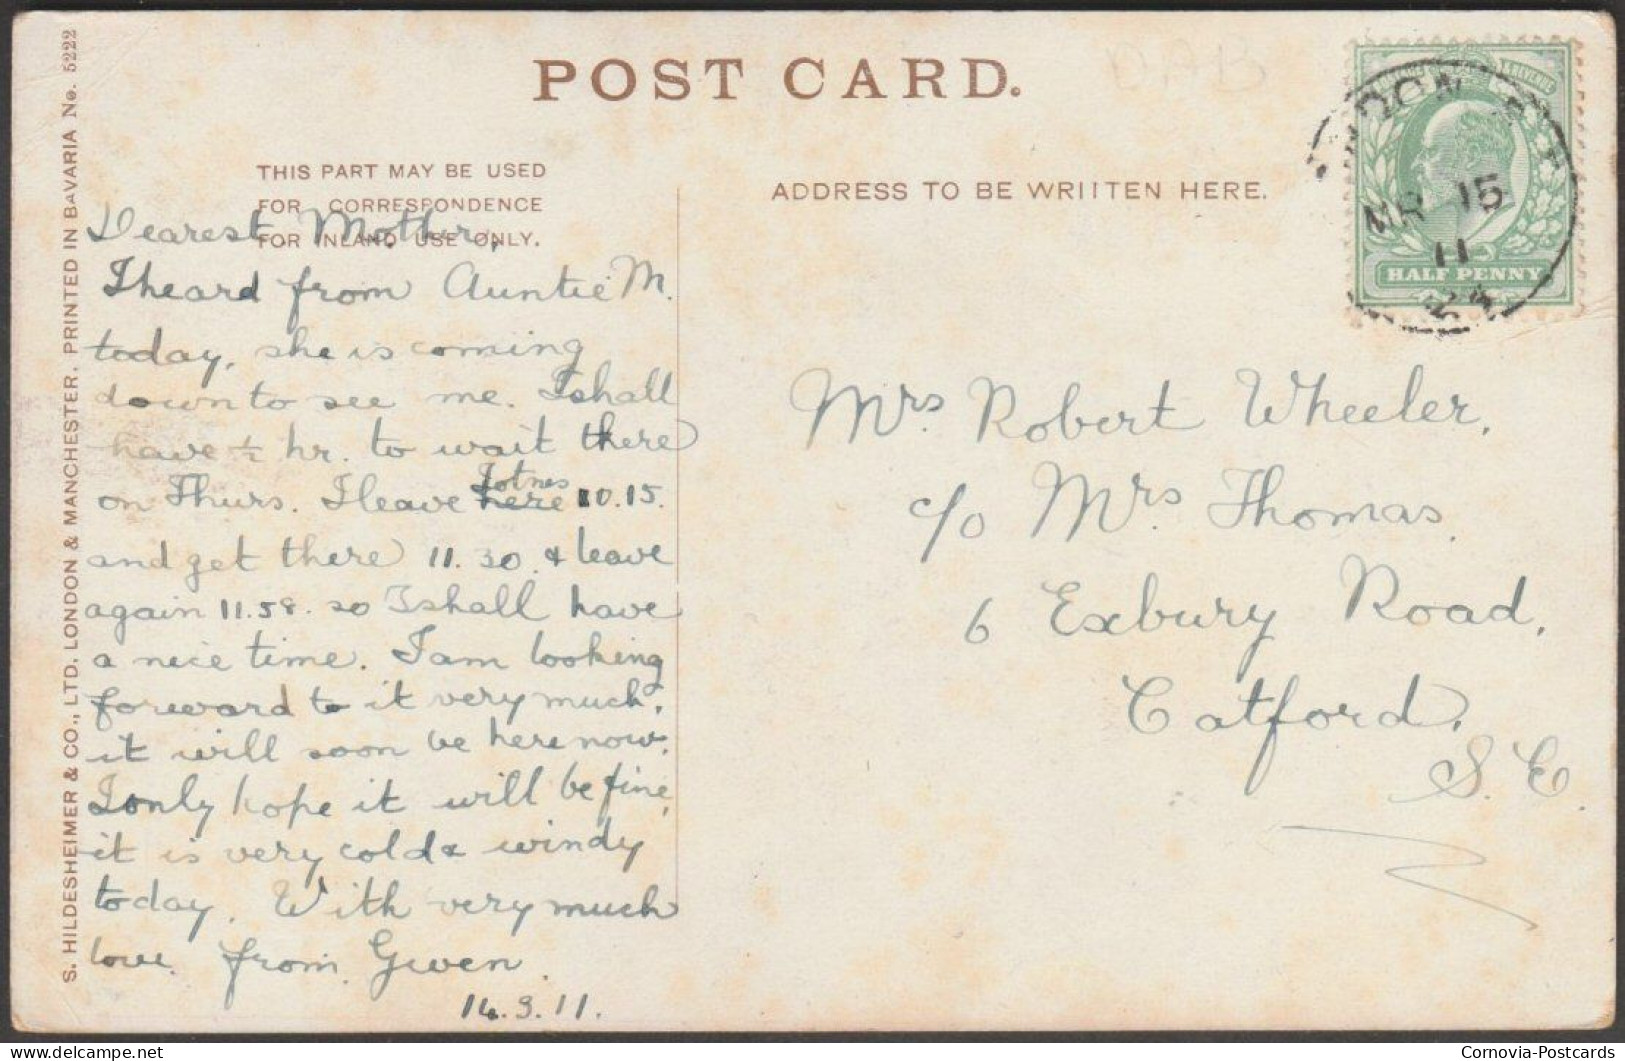 POST CARD.
DAB
THIS PART MAY BE USED
FOR CORRESPONDENCE
FOR INLAND USE ONLY.
ADDRESS TO BE WRIITEN HERE.
S. HILDESHEIMER & CO., LTD. LONDON & MANCHESTER. PRINTED IN BAVARIA No. 5222
Dearest Mother,
I heard from Auntie M.
today, she is coming
down to see me. I shall
have ½ hr. to wait there
on Thurs. I leave here Totnes 10.15.
and get there 11.30 & leave
again 11.58. so I shall have
a nice time. I am looking
forward to it very much,
it will soon be here now.
I only hope it will be fine,
it is very cold & windy
today. With very much
love from Gwen.
14.3.11.
Mrs Robert Wheeler,
c/o Mrs Thomas.
6 Exbury Road,
Catford,
S.E.
& REVENUE
MR 15
11
HALF PENNY
Cornovia-Postcards